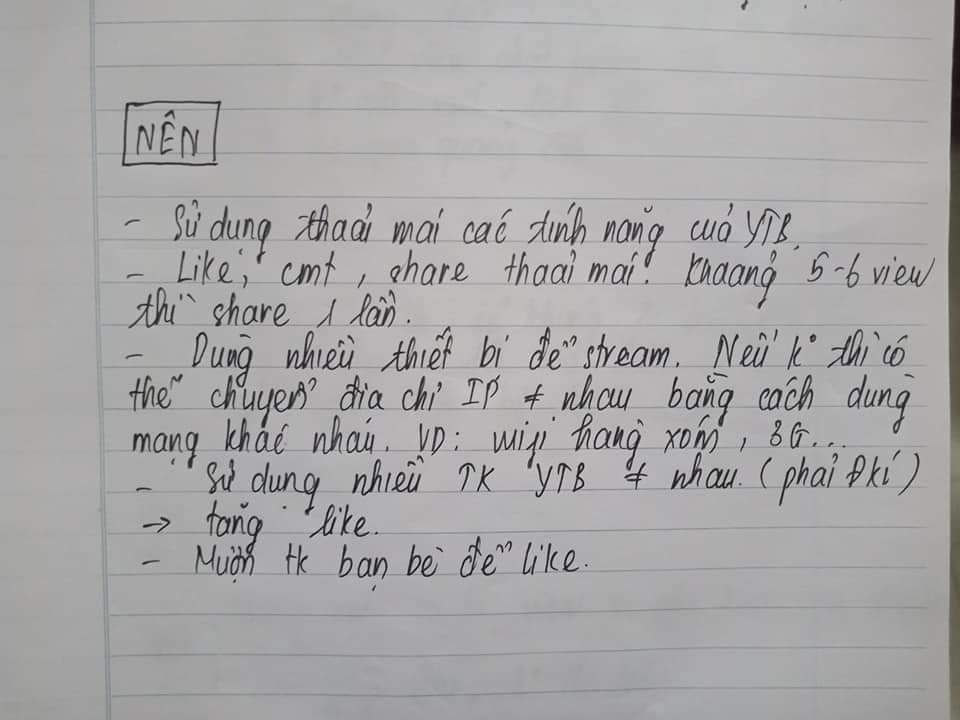 NÊN
- Sử dụng thoải mái các tính năng của YTB.
- Like, cmt, share thoải mái! Khoảng 5-6 view
thì share 1 lần.
- Dùng nhiều thiết bị để stream. Nếu k° thì có
thể chuyển địa chỉ IP ≠ nhau bằng cách dùng
mạng khác nhau. VD: wifi hàng xóm, 3G...
- Sử dụng nhiều TK YTB ≠ nhau. (phải Đkí)
→ tăng like.
- Mượn tk bạn bè để like.